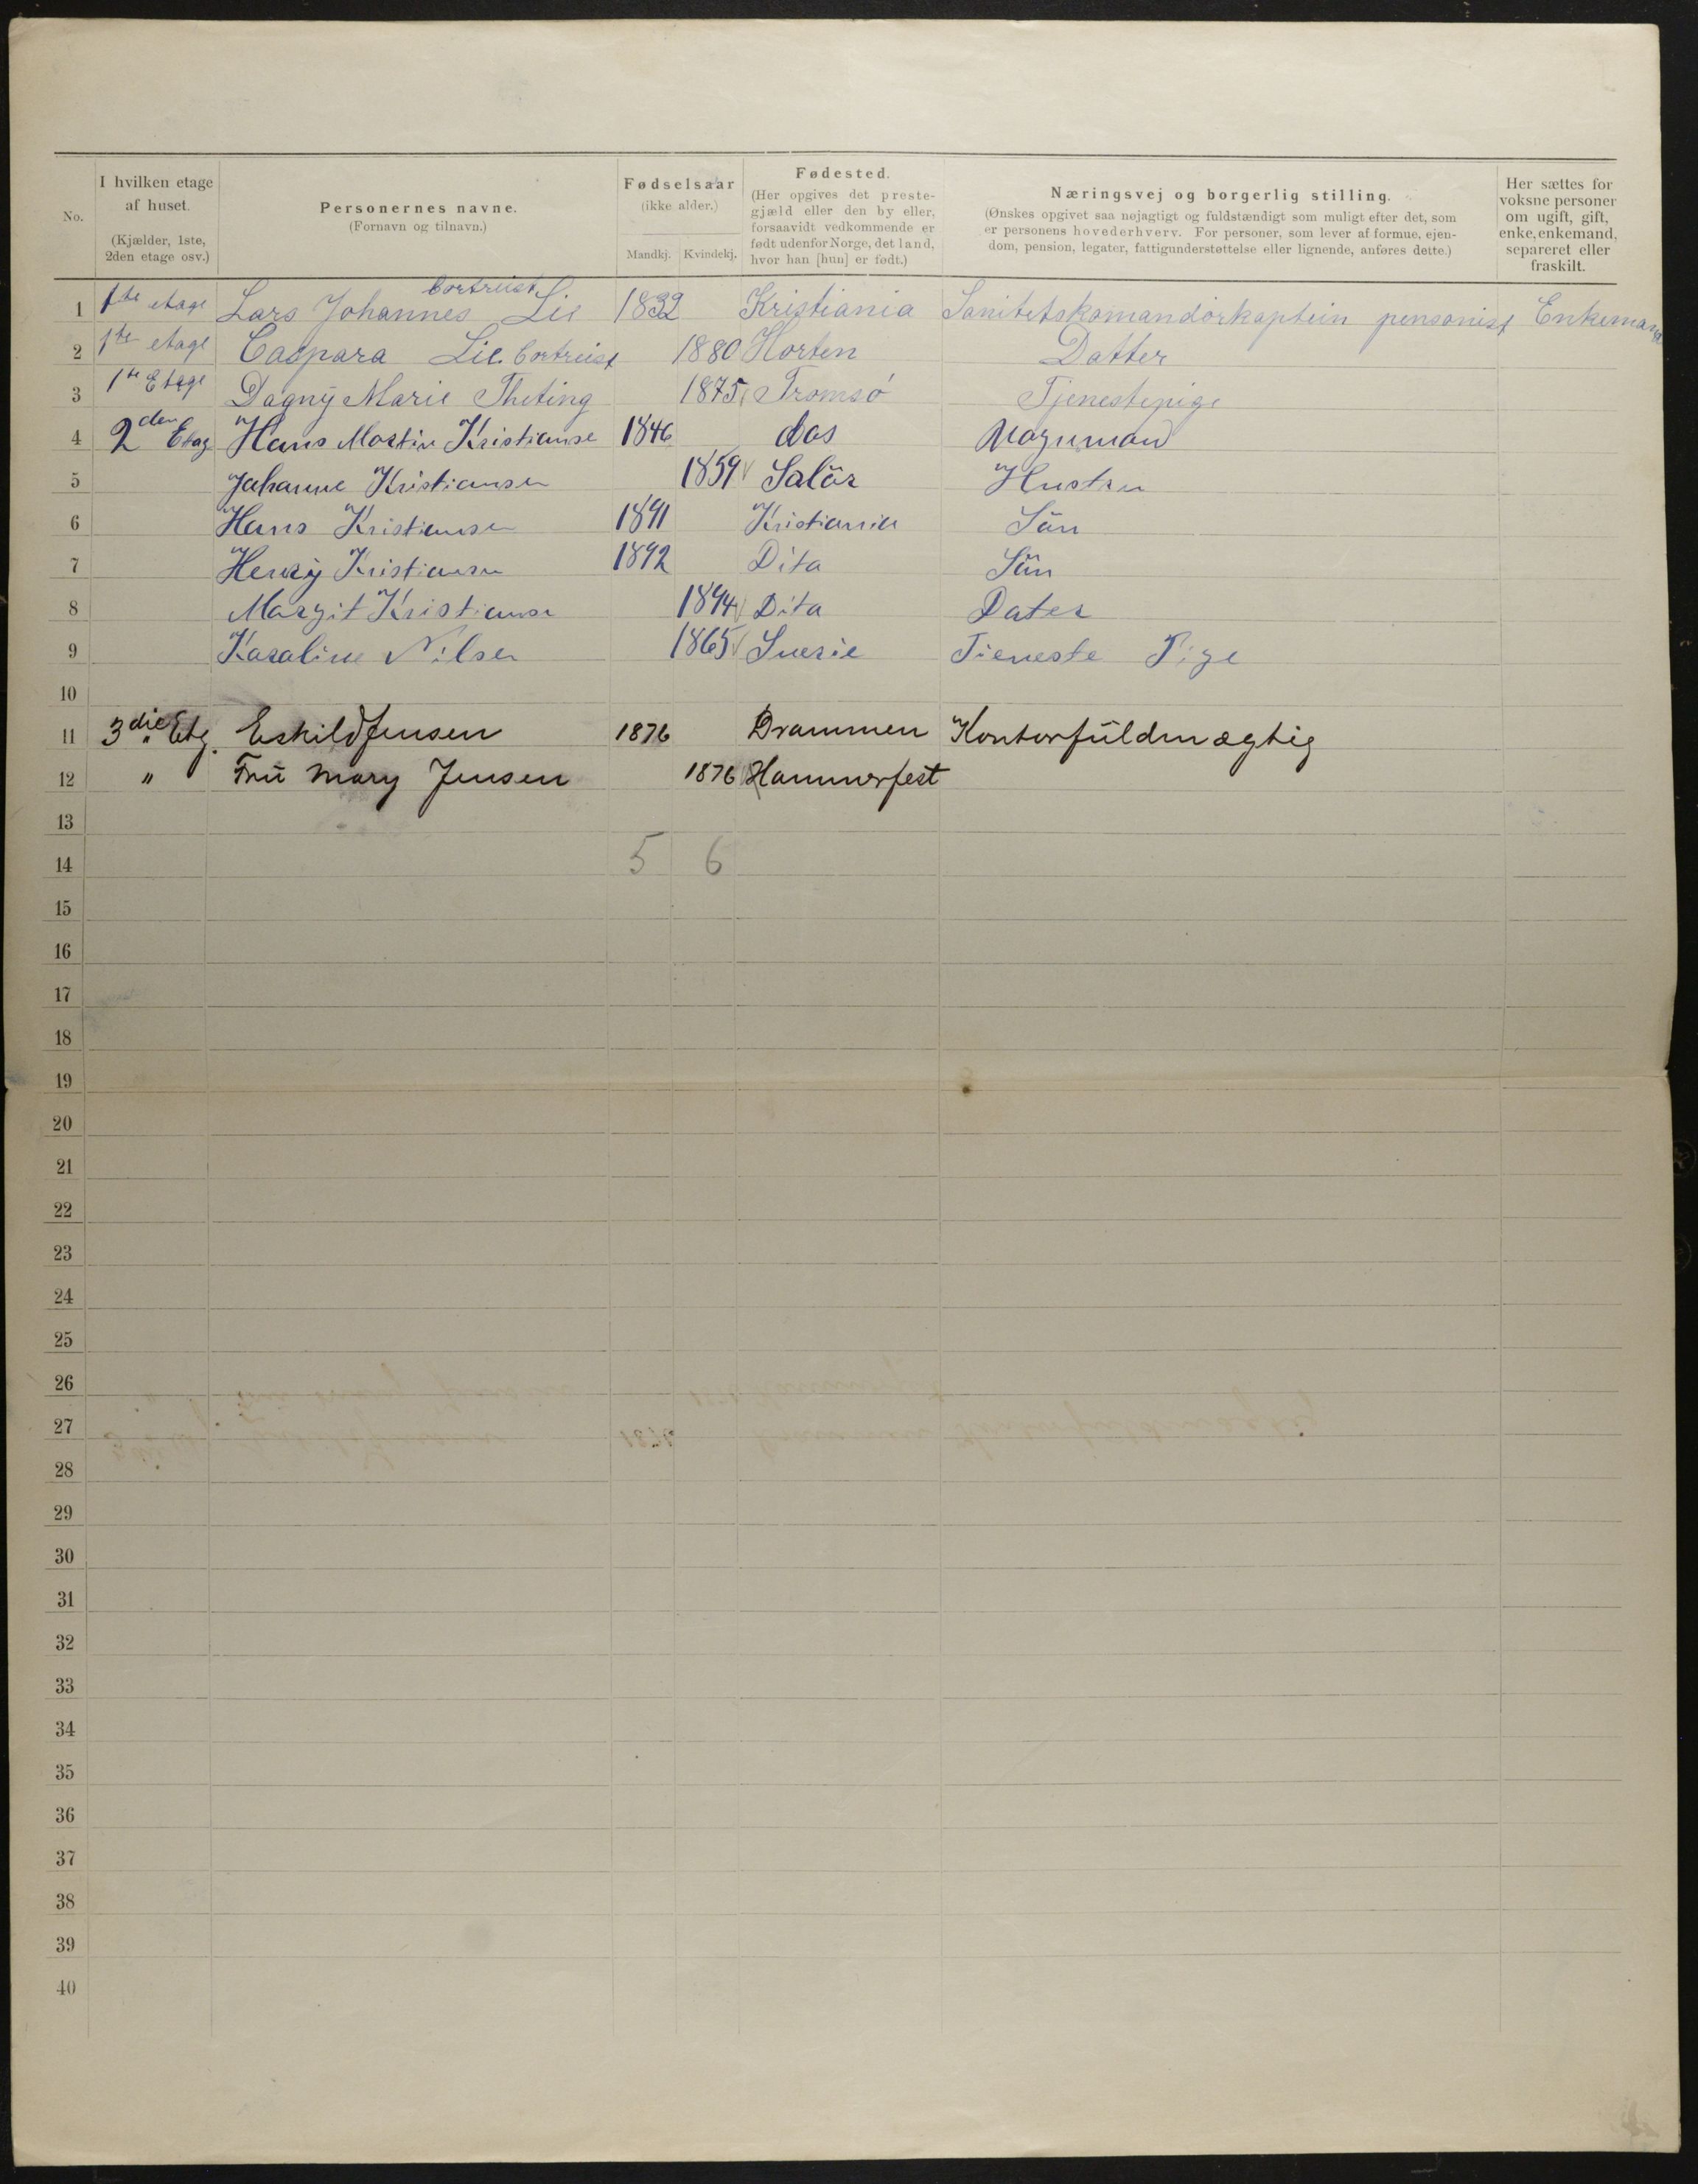 No.
I hvilken etage af huset. (Kjælder, 1ste, 2den etage osv.)
Personernes navne. (Fornavn og tilnavn.)
Fødselsaar (ikke alder.) Mandkj. Kvindekj.
Fødested. (Her opgives det prestegjæld eller den by eller, forsaavidt vedkommende er født udenfor Norge, det land, hvor han [hun] er født.)
Næringsvej og borgerlig stilling. (Ønskes opgivet saa nøjagtigt og fuldstændigt som muligt efter det, som er personens hovederhverv. For personer, som lever af formue, ejendom, pension, legater, fattigunderstøttelse eller lignende, anføres dette.)
Her sættes for voksne personer om ugift, gift, enke, enkemand, separeret eller fraskilt.
bortreist
1 1ste etage Lars Johannes Lie 1832 Kristiania Sanitetskomandörkaptein pensonist Enkemand
2 1ste etage Caspara Lie bortreist 1880 Horten Datter
3 1ste Etage Dagny Marie Theting 1875 Tromsö Tjenestepige
4 2den Etag Hans Martin Kristianse 1846 Aas Vognmand
5 Johanne Kristiansen 1859 Solör Hustru
6 Hans Kristiansen 1891 Kristiania Sön
7 Henry Kristiansen 1892 Dito Sön
8 Margit Kristianse 1894 Dito Dater
9 Karaline Nilsen 1865 Sverie Tieneste Pige
10
11 3die Etg. Eskild Jensen 1876 Drammen Kontorfuldmægtig
12 " Fru Mary Jensen 1876 Hammerfest
13
14 5 6
15
16
17
18
19
20
21
22
23
24
25
26
27
28
29
30
31
32
33
34
35
36
37
38
39
40